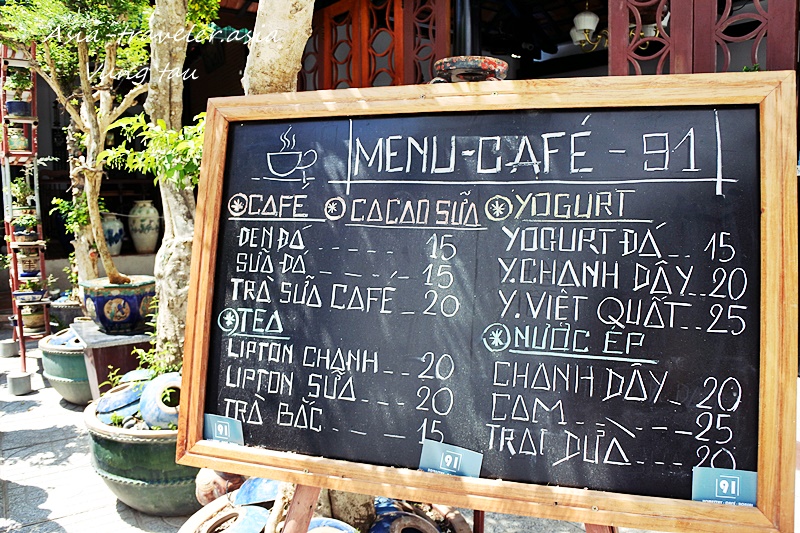 Asia-traveler.asia
Vung tau
MENU-CAFÉ-91
CAFE
CACAO SỮA
ĐEN ĐÁ ------ 15
SỮA ĐÁ ------ 15
TRÀ SỮA CAFÉ -- 20
TEA
LIPTON CHANH --- 20
LIPTON SỮA ---- 20
TRÀ BẮC ------ 15
YOGURT
YOGURT ĐÁ --- 15
Y.CHANH DÂY -- 20
Y.VIỆT QUẤT -- 25
NƯỚC ÉP
CHANH DÂY -- 20
CAM ------- 25
TRÁI DỪA ---- 20
91
91
91